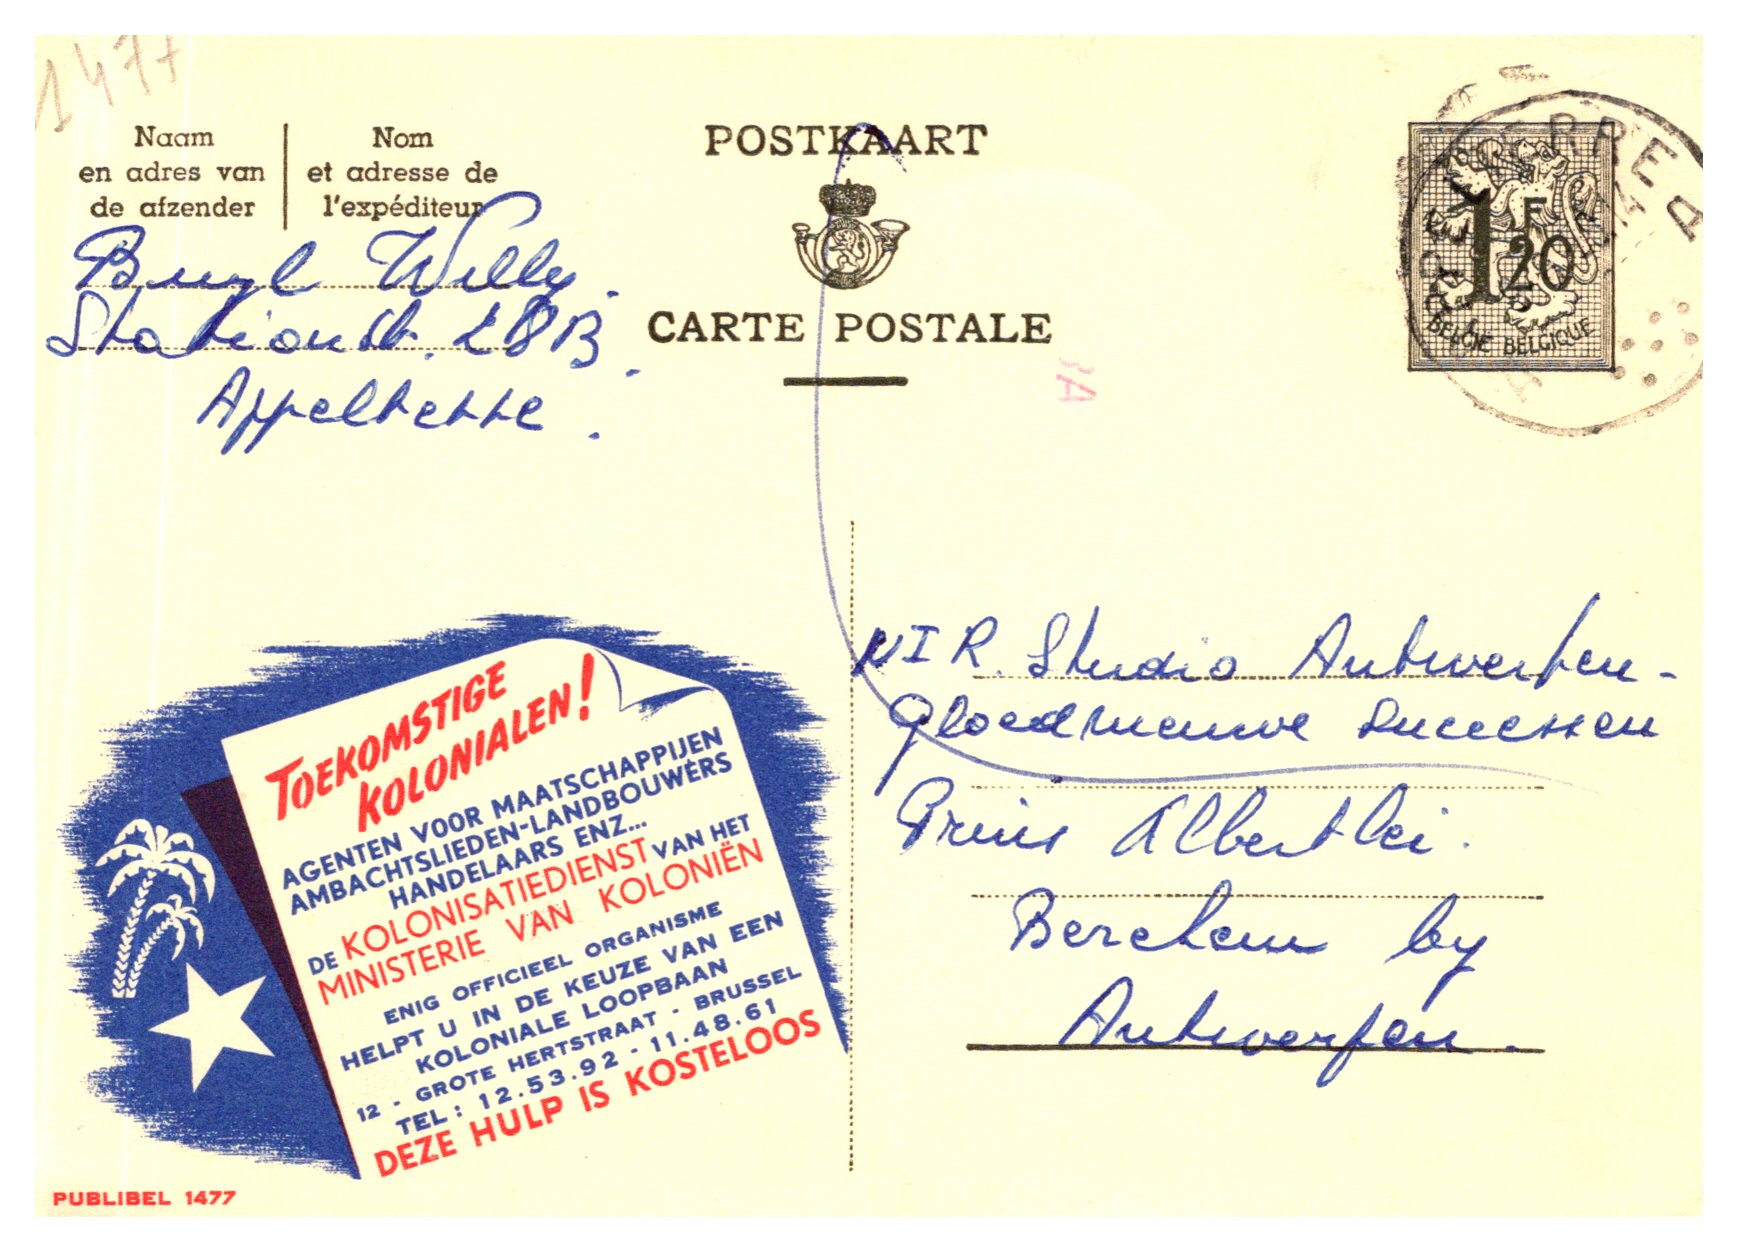 1477
Naam
en adres van
de afzender
Nom
et adresse de
l'expéditeur
Willy.
Stationstr. 28B.
Appelterre.
POSTKAART
CARTE POSTALE
1F20
BELGIE BELGIQUE
A
TOEKOMSTIGE
KOLONIALEN!
AGENTEN VOOR MAATSCHAPPIJEN
AMBACHTSLIEDEN-LANDBOUWERS
HANDELAARS ENZ...
DE KOLONISATIEDIENST VAN HET
MINISTERIE VAN KOLONIËN
ENIG OFFICIEEL ORGANISME
HELPT U IN DE KEUZE VAN EEN
KOLONIALE LOOPBAAN
12 - GROTE HERTSTRAAT - BRUSSEL
TEL: 12.53.92 - 11.48.61
DEZE HULP IS KOSTELOOS
PUBLIBEL 1477
NIR. Studio Antwerpen-
Gloednieuwe Successen
Prins Albertlei.
Berchem by
Antwerpen.